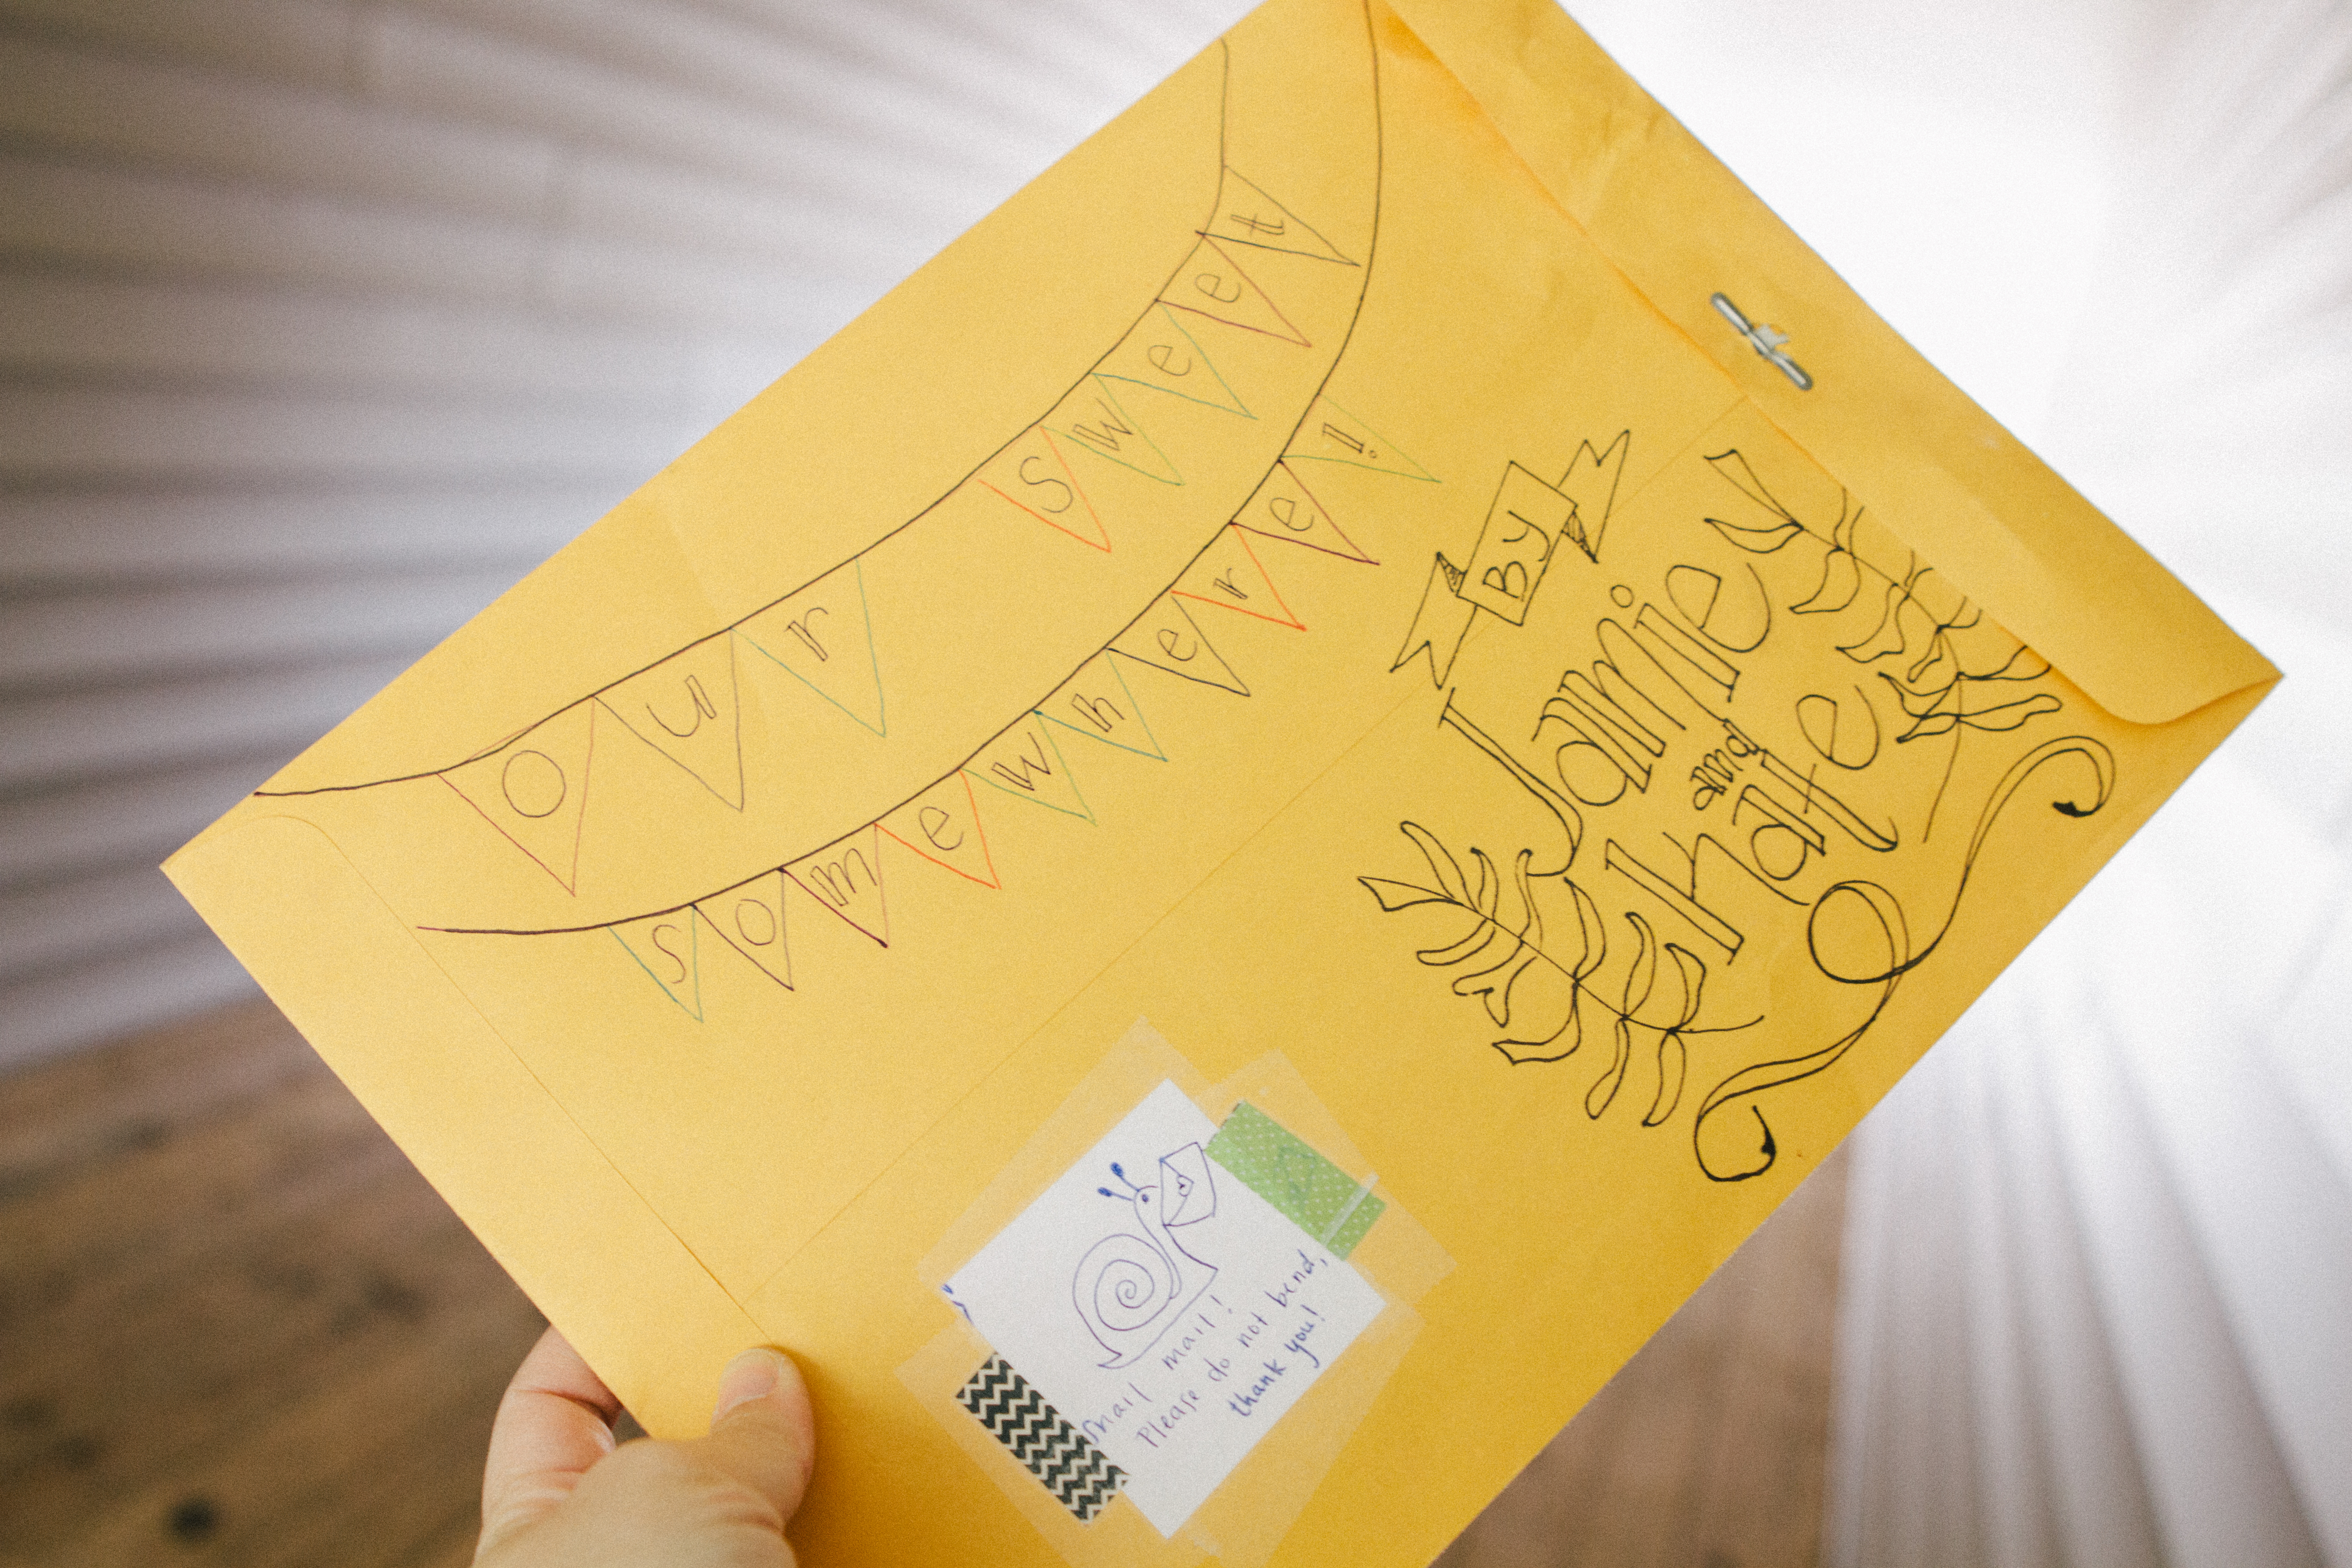 our sweet
somewhere!
By
Jamie
and
Kate
Snail mail!
Please do not bend,
thank you!